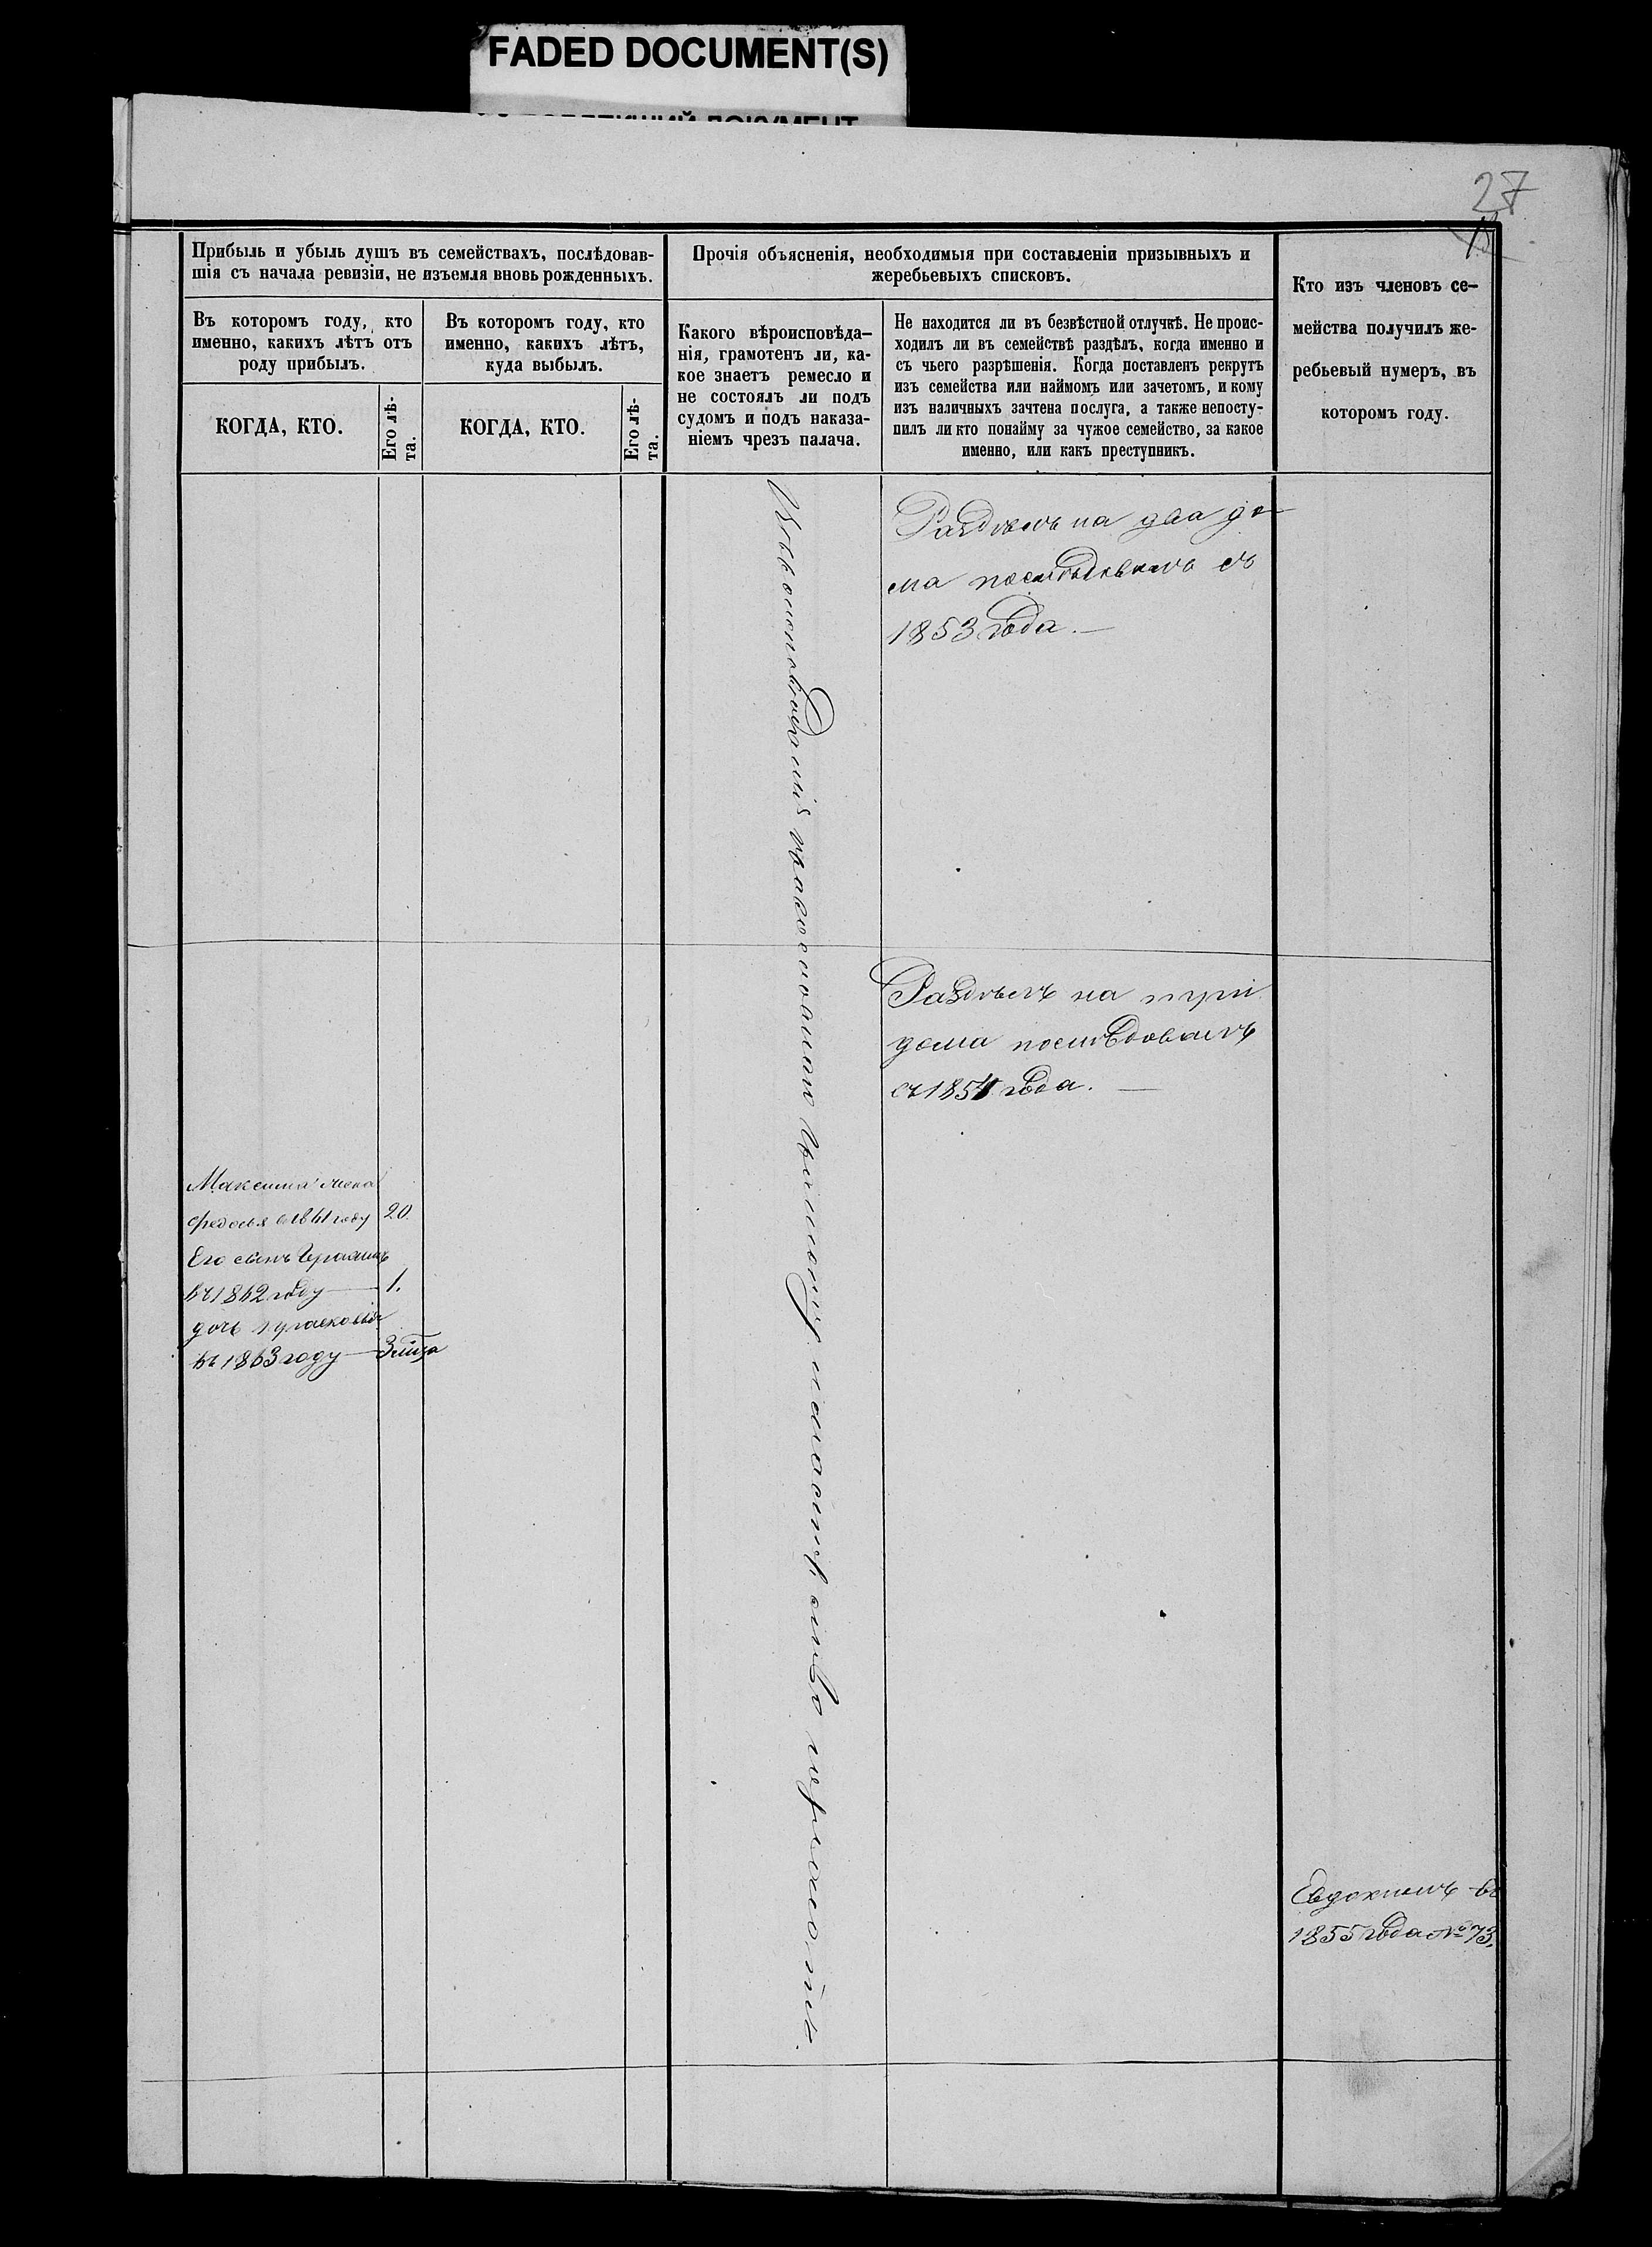 FADED DOCUMENT(S)
27
Прибыль и убыль душъ въ семействахъ, послѣдовав-
шія съ начала ревизіи, не изъемля вновь рожденныхъ.
Въ которомъ году, кто
именно, какихъ лѣтъ отъ
роду прибылъ.
КОГДА, КТО.
Его лѣ-
та.
Въ которомъ году, кто
именно, какихъ лѣтъ,
куда выбылъ.
КОГДА, КТО.
Его лѣ-
та.
Прочія объясненія, необходимыя при составленіи призывныхъ и
жеребьевыхъ списковъ.
Какого вѣроисповѣда-
нія, грамотенъ ли, ка-
кое знаетъ ремесло и
не состоялъ ли подъ
судомъ и подъ наказа-
ніемъ чрезъ палача.
Не находится ли въ безвѣстной отлучкѣ. Не проис-
ходилъ ли въ семействѣ раздѣлъ, когда именно и
съ чьего разрѣшенія. Когда поставленъ рекрутъ
изъ семейства или наймомъ или зачетомъ, и кому
изъ наличныхъ зачтена послуга, а также непосту-
пилъ ли кто понайму за чужое семейство, за какое
именно, или какъ преступникъ.
Кто изъ членовъ се-
мейства получилъ же-
ребьевый нумеръ, въ
которомъ году.
Раздѣлъ на два до-
ма послѣдовалъ съ
1853 года.—
Раздѣлъ на три
дома послѣдовалъ
съ 1854 года.—
Максима жена
Федосья в 1861 году 20.
Его сынъ Герасимъ
въ 1862 году — 1.
дочь Прасковья
въ 1863 году —
Вѣроисповѣданія православнаго
Евдокимъ въ
1855 года № 73.